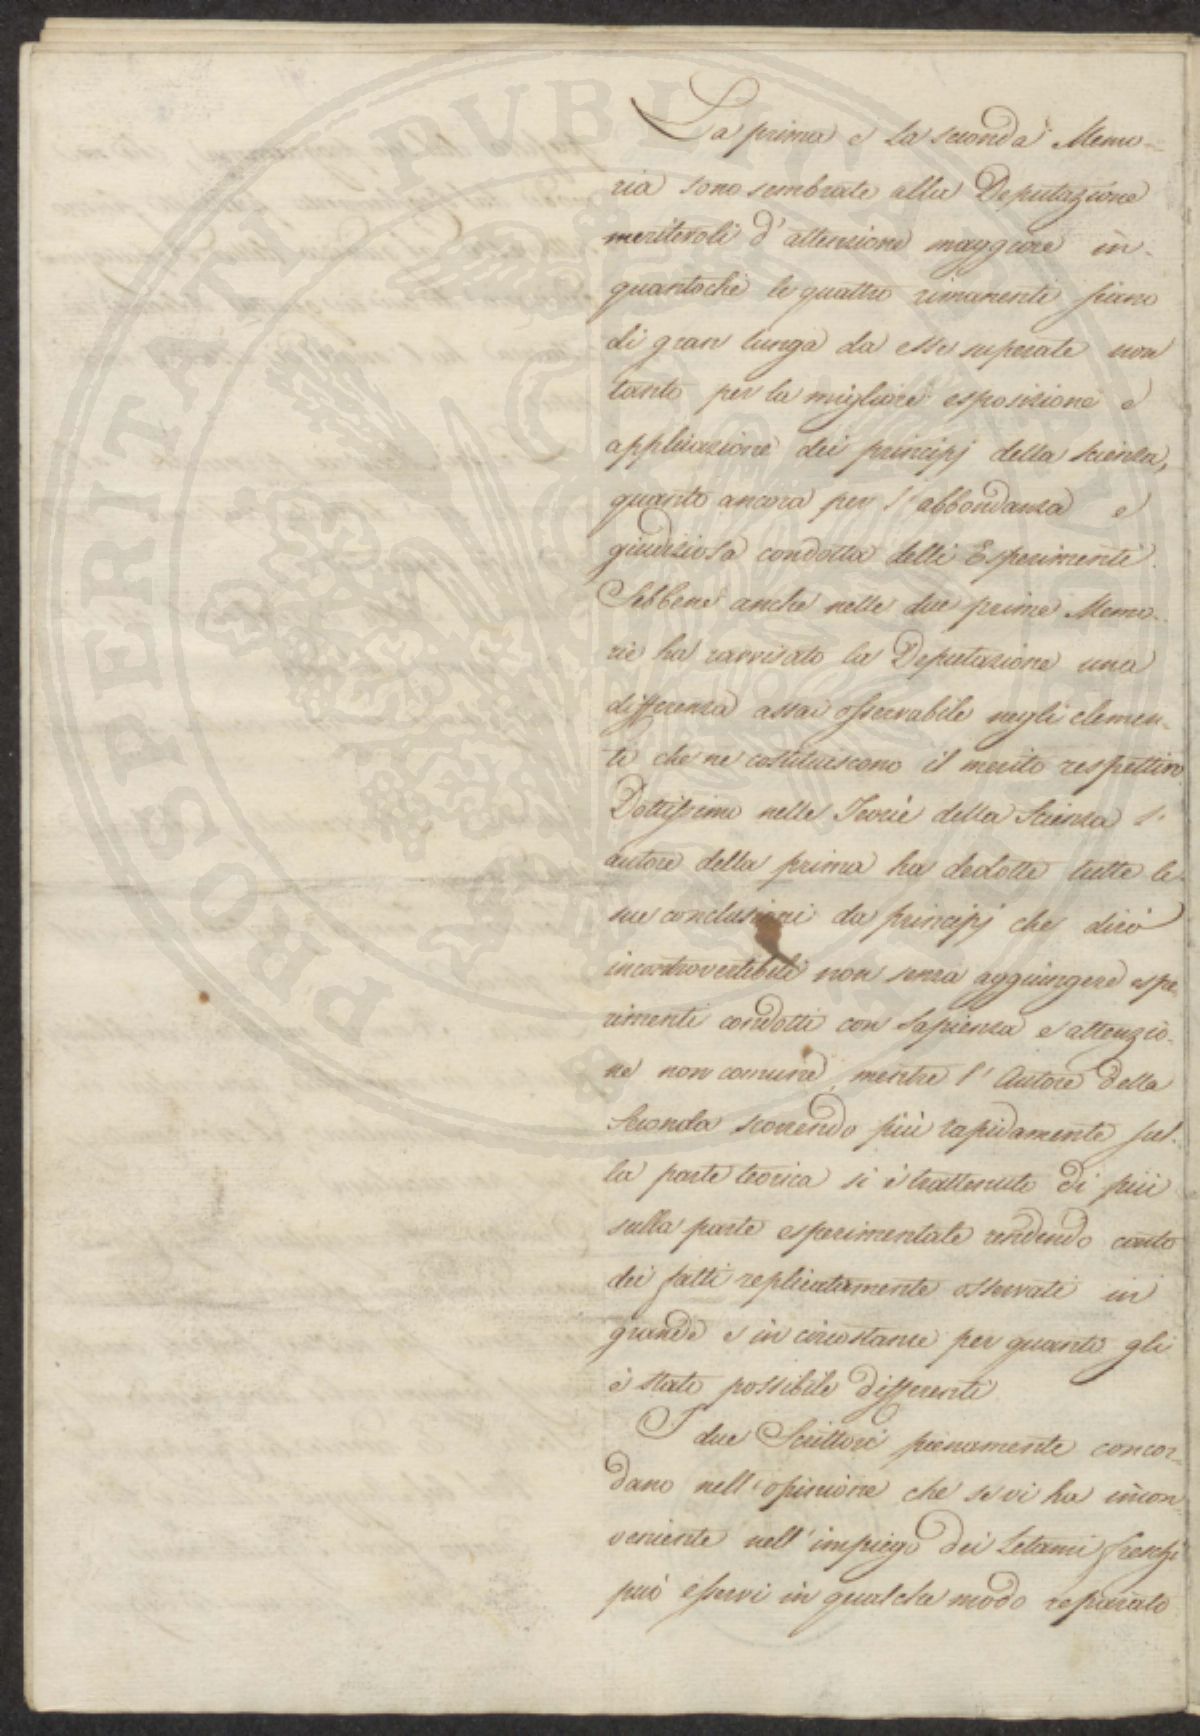 La prima e la seconda Memo-
ria sono sembrate alla Deputazione
meritevoli d'attenzione maggiore in-
quantochè le quattro rimanenti siano
di gran lunga da esse superate non
tanto per la migliore esposizione e
applicazione dei principj della scienza,
quanto ancora per l'abbondanza e
giudiziosa condotta delli Esperimenti.
Sebbene anche nelle due prime Memo-
rie ha ravvisato la Deputazione una
differenza assai osservabile negli elemen-
ti che ne costituiscono il merito respettivo
Dottissimo nelle Teorie della Scienza l'
autore della prima ha dedotte tutte le
sue conclusioni da principj che dirò
incontrovertibili non senza aggiungere espe-
rimenti condotti con sapienza e attenzio-
ne non comune, mentre l'Autore della
Seconda scorrendo più rapidamente sul-
la parte teorica si è trattenuto di più
sulla parte esperimentale rendendo conto
dei fatti replicatamente osservati in
grande e in circostanze per quanto gli
è stato possibile differenti
I due Scrittori pienamente concor-
dano nell'opinione che se vi ha incon
veniente nell'impiego dei Letami freschi
può esservi in qualche modo reparato
PROSPERITATI PUBLICAE